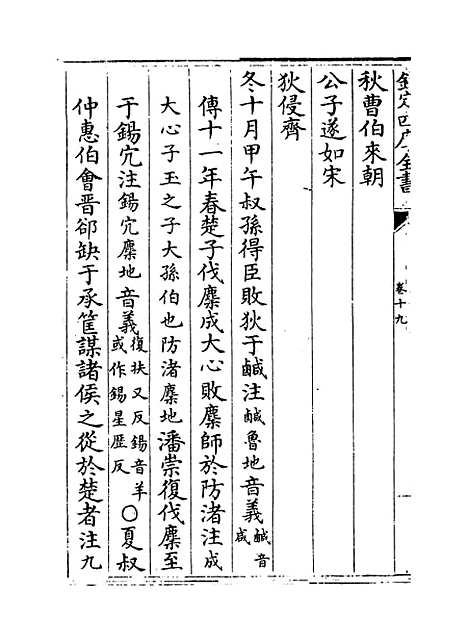 欽定四庫全書
卷十九
秋曹伯來朝
公子遂如宋
狄侵齊
冬十月甲午叔孫得臣敗狄于鹹注鹹魯地音義鹹音咸
傳十一年春楚子伐麇成大心敗麇師於防渚注成
大心子玉之子大孫伯也防渚麇地潘崇復伐麇至
于錫穴注錫穴麇地音義復扶又反錫音羊或作錫星歷反〇夏叔
仲惠伯會晋郤缺于承筐謀諸侯之從於楚者注九